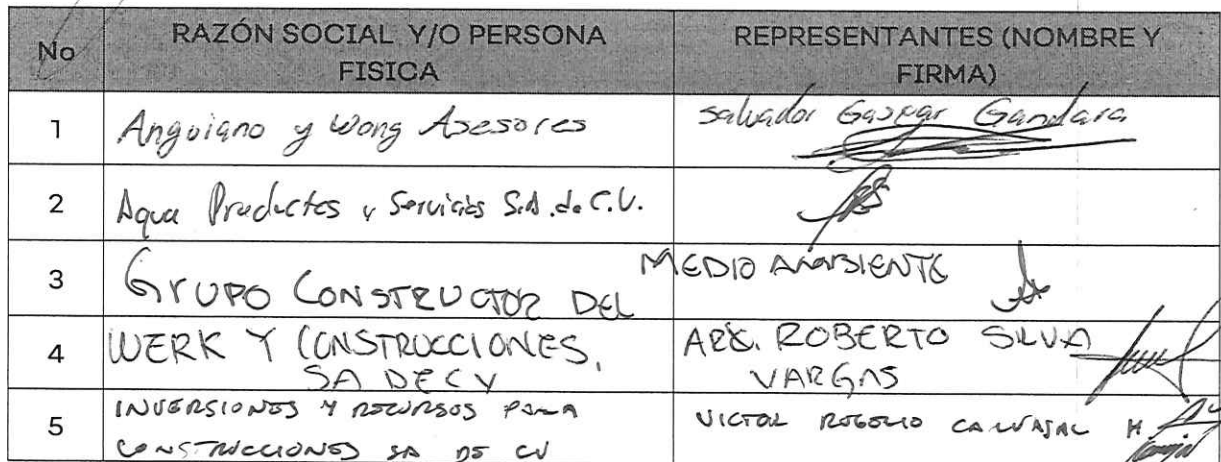 No
RAZÓN SOCIAL Y/O PERSONA
FISICA
REPRESENTANTES (NOMBRE Y
FIRMA)
1
Anguiano y Wong Asesores
Salvador Gaspar Gandara
2
Aqua Productos y Servicios S.A. de C.V.
3
GRUPO CONSTRUCTOR DEL
MEDIO AMBIENTE
4
WERK Y CONSTRUCCIONES,
SA DE CV
ARQ. ROBERTO SILVA
VARGAS
5
INVERSIONES Y RECURSOS PARA
CONSTRUCCIONES SA DE CV
VICTOR ROGELIO CARVAJAL H.